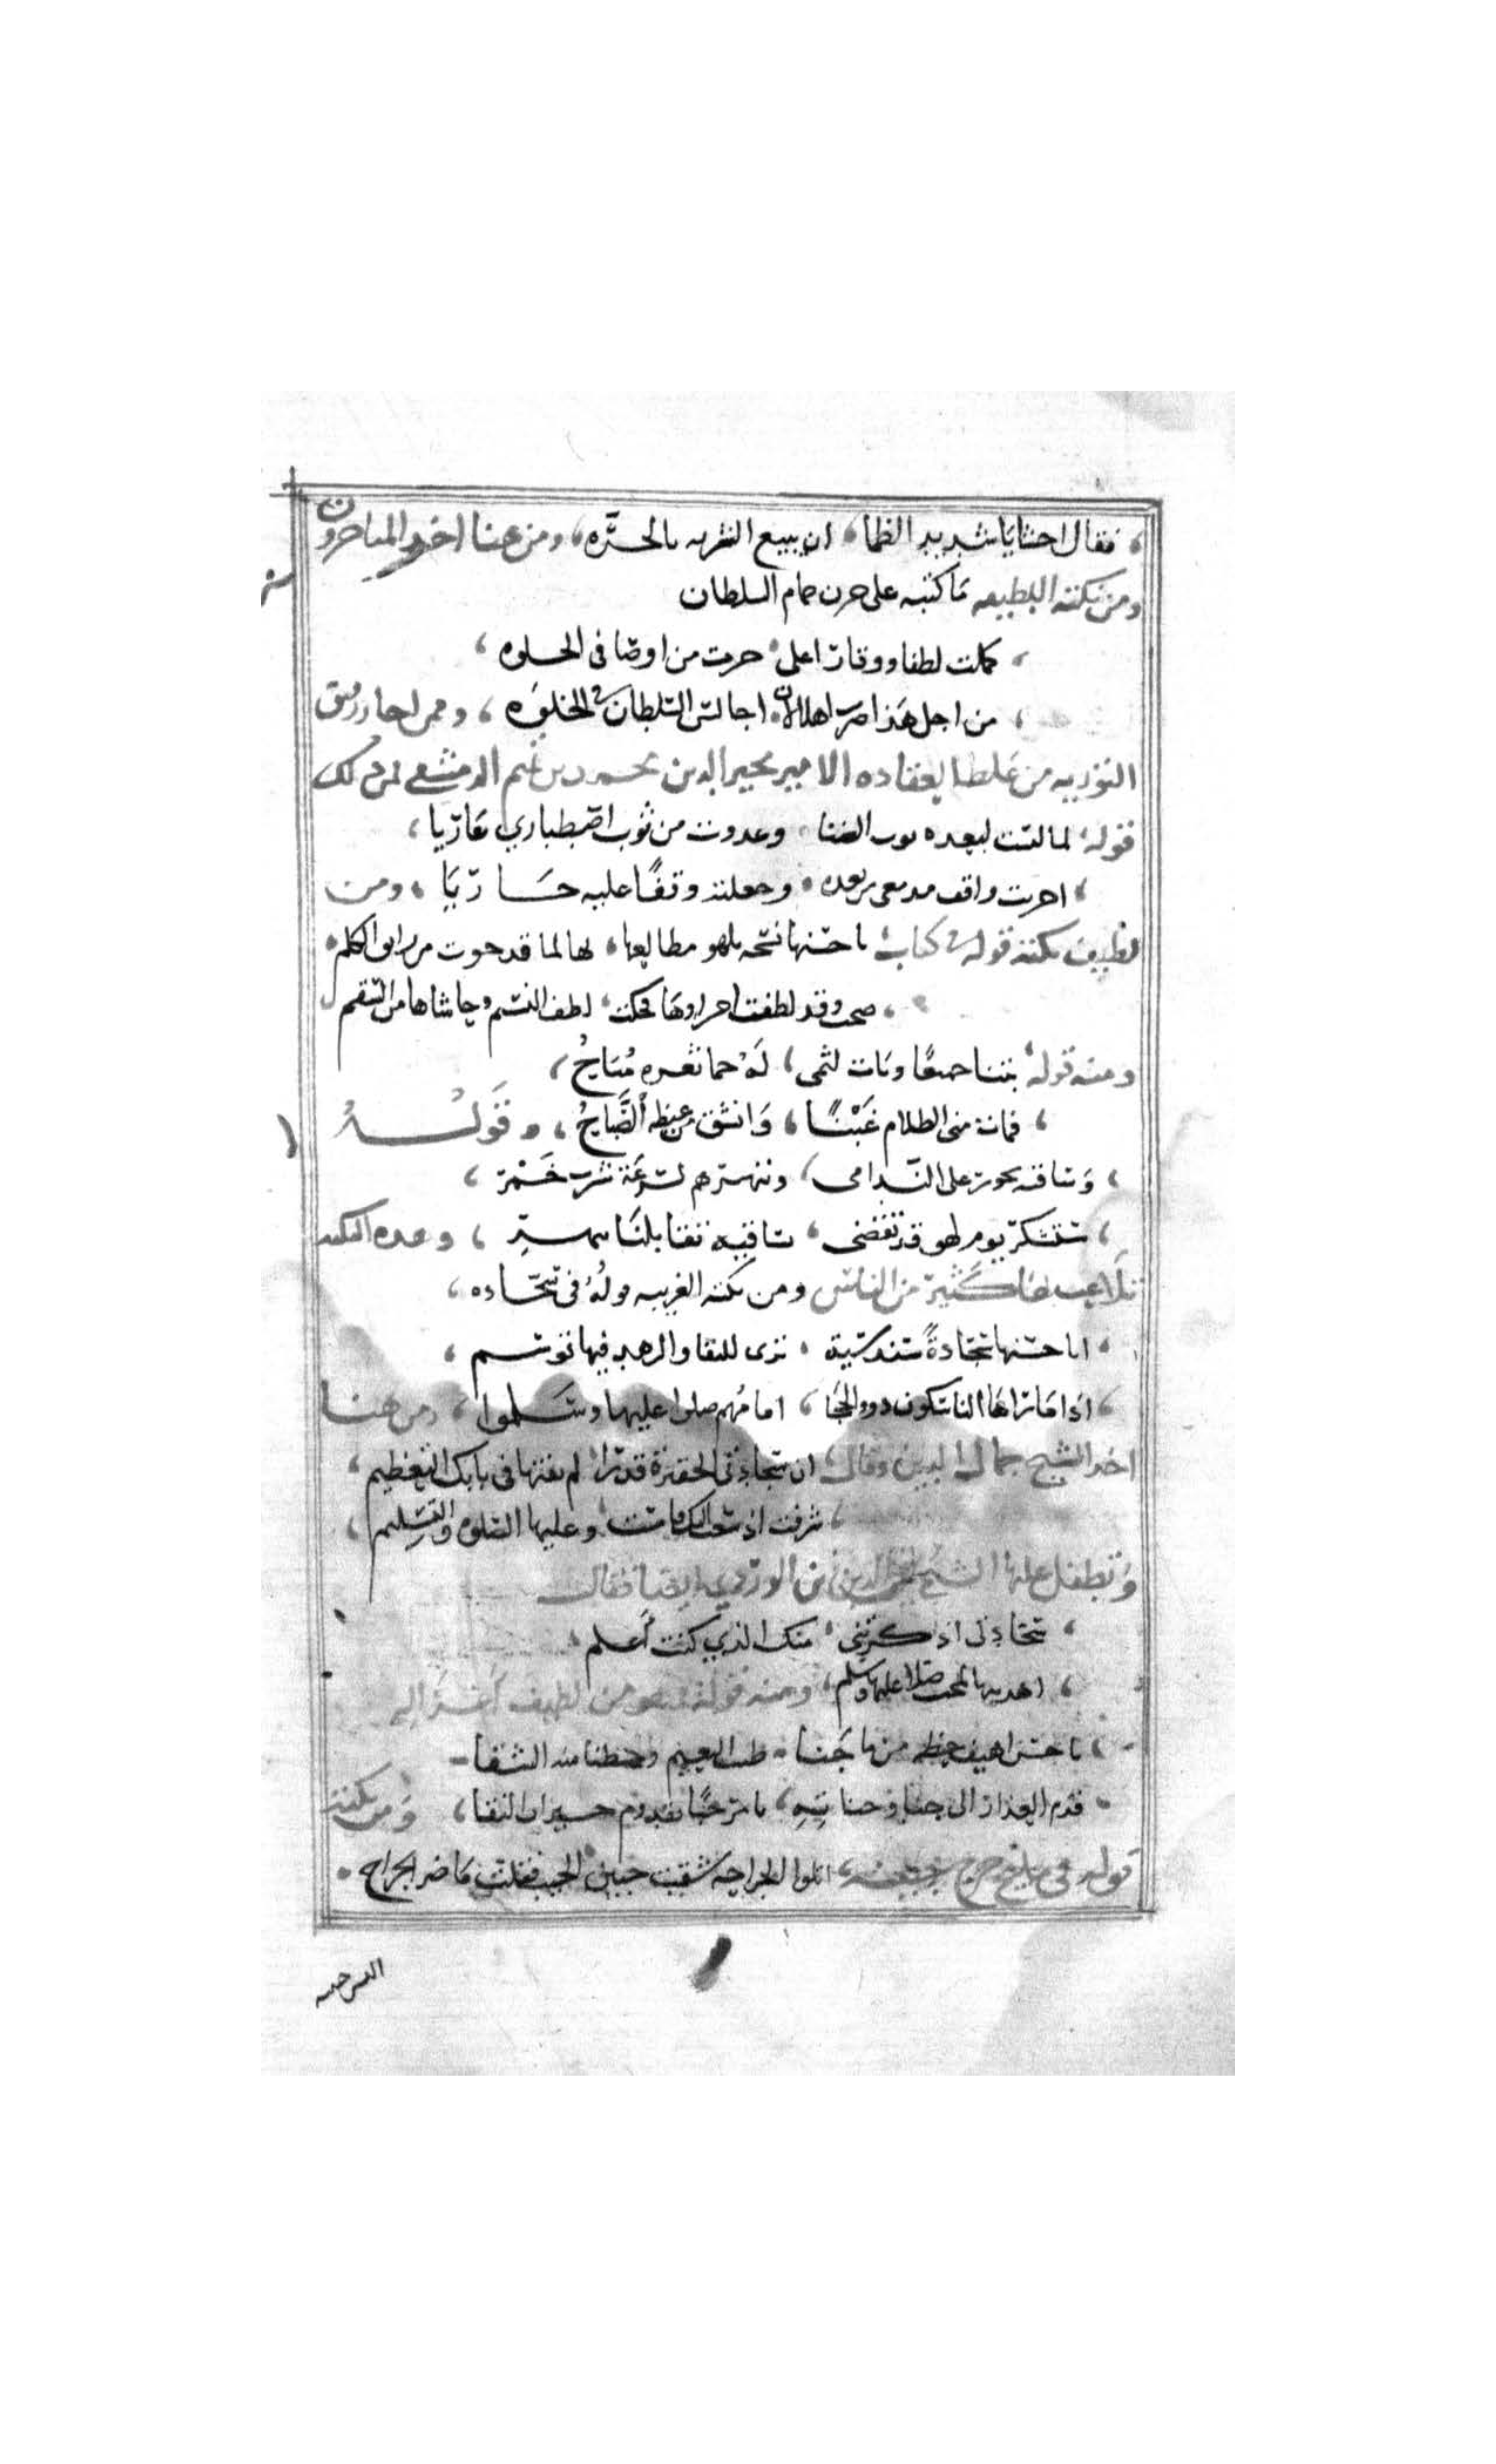 فقال احشايا شديد الظما ان يبيع الشربه بالجره ومن هنا اخد المتاخرون
ومن نكته اللطيفه ما كتبه على جرن حمام السلطان
كملت لطفا ووقارا على حرت من اوصافى الحلوه
من اجل هذا صرت اهلا لان اجالس السلطان في الخلوه وممن
التوريه من غلط العقاده الامير مجير الدين محمد بن تميم الدمشقى فمن ذلك
قوله لما لبست لبعده ثوب الضنا وغدوت من ثوب اصطباري عاريا
اجريت واقف مدمعى من بعده وجعلته وقفا عليه جاريا ومن
لطيف نكته قوله في كتاب يا حسنها نسخه يلهو مطالعها لها لما قد حوت من رايق الكلم
صحت وقد لطفت اجراوها فحكت لطف النسيم وحاشاها من السقم
ومنه قوله بتنا جميعا وبات لثمى له حما ثغره مباح
فمات منى الظلام غبنا وانشق من غيظه الصباح وقوله
وساقيه تجور على الندامى وتنهرهم لسرعة شرب خمر
سنشكر يوم لهو قد تقضى بساقيه تقابلنا بنهر وهذه النكته
تلاعب بها كثير من الناس ومن نكته الغريبه قوله فى سجاده
ايا حسنها سجادة سندسية ترى للتقا والزهد فيها توسم
اذا ما تراها الناسكون ذوو الحجا امامهم صلوا عليها وسلموا ومن هنا
اخد الشيخ جمال الدين وقال ان سجادتى الحقيرة قدرا لم يفتها فى بابك التعظيم
شرفت اذ سعت اليك فامست وعليها الصلوه والتسليم
وتطفل عليها الشيخ زين الدين بن الوردي ايضا فقال
سجادتى اذكرتنى منك الذي كنت اعلم
اهديتها لمحب صلا عليها وسلم ومنه قوله وهو من لطيف
يا حسن اهيف خطه من ها جنا طيب النعيم وحظنا منه الشقا
قدم العذار الى جنا وجناته يا مرحبا بقدوم جيران النقا ومن نكته
قوله فى مليح جرح قالوا الجراحه شقيت جبين الحبيب فقلت ما ضر الجراح